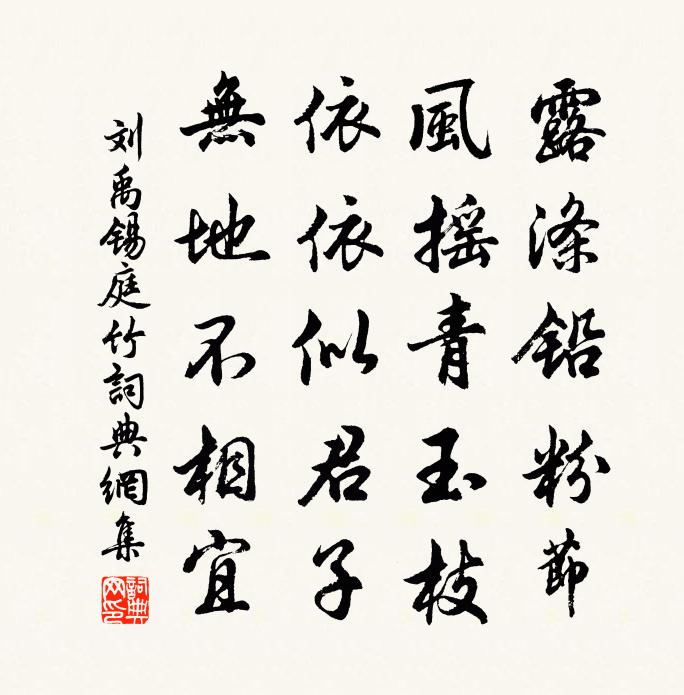 露滌鉛粉節
風摇青玉枝
依依似君子
無地不相宜
刘禹锡庭竹詞典網集
詞典網印